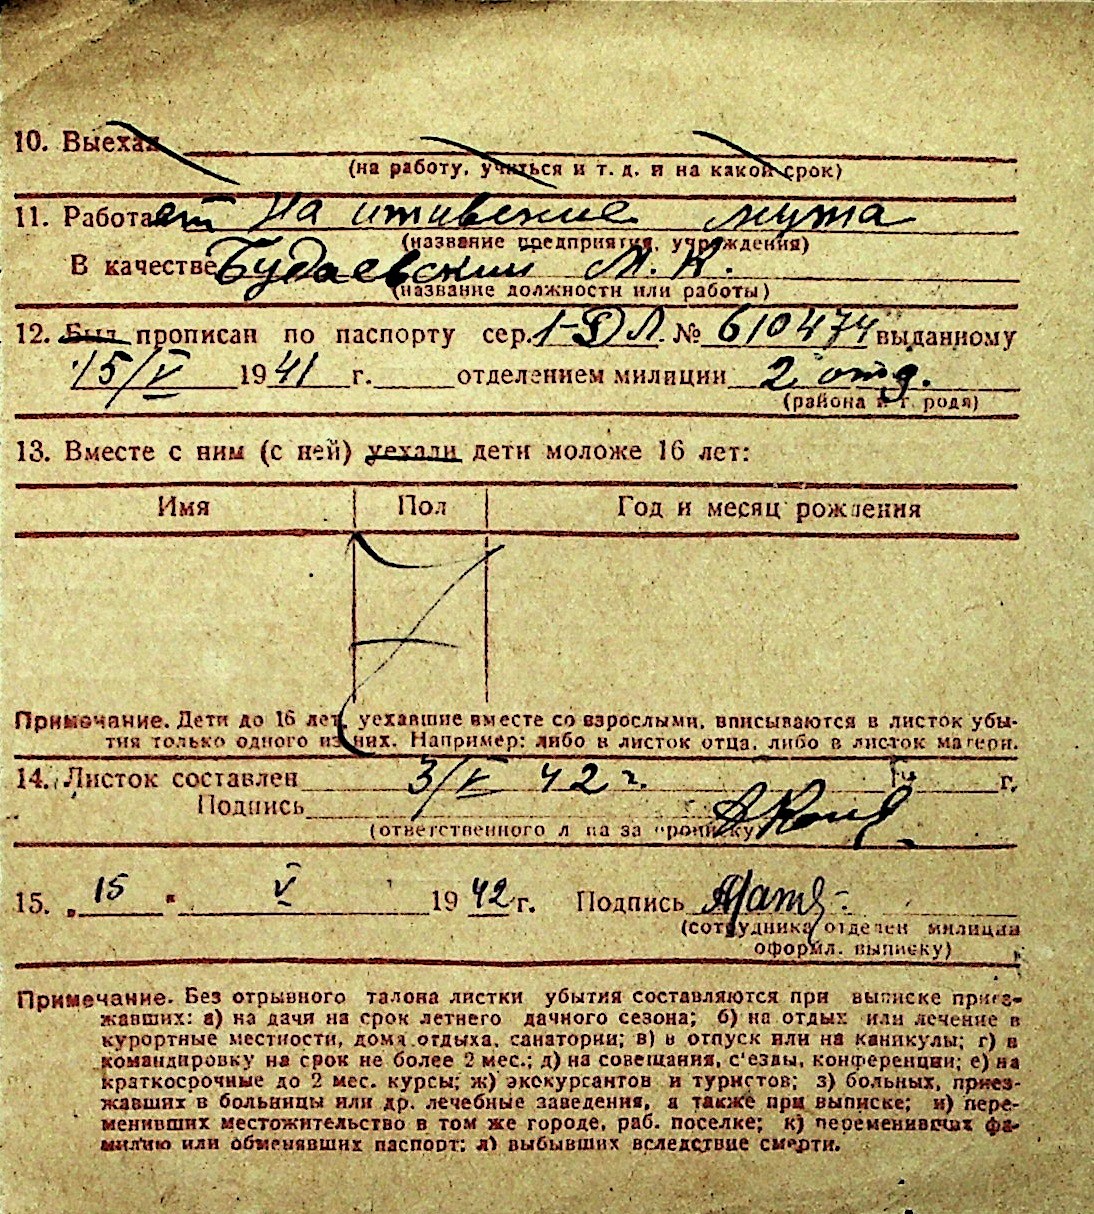 10. Выехал
(на работу, учиться и т. д. и на какой срок)
11. Работает На иждивение мужа
(название предприятия, учреждения)
В качестве Будаевский М. К.
(название должности или работы)
12. Был прописан по паспорту сер. 1-ДЛ. № 610474 выданному
15/V 1941 г. отделением милиции 2 отд.
(района и города)
13. Вместе с ним (с ней) уехали дети моложе 16 лет:
Имя Пол Год и месяц рождения
Примечание. Дети до 16 лет, уехавшие вместе со взрослыми, вписываются в листок убы-
тия только одного из них. Например: либо в листок отца, либо в листок матери.
14. Листок составлен 3/V 42 г. г.
Подпись
(ответственного лица за прописку)
15. „15" V 1942 г. Подпись
(сотрудника отделен милиции
оформл. выписку)
Примечание. Без отрывного талона листки убытия составляются при выписке приез-
жавших: а) на дачи на срок летнего дачного сезона; б) на отдых или лечение в
курортные местности, дома отдыха, санатории; в) в отпуск или на каникулы; г) в
командировку на срок не более 2 мес.; д) на совещания, с'езды, конференции; е) на
краткосрочные до 2 мес. курсы; ж) экскурсантов и туристов; з) больных, приез-
жавших в больницы или др. лечебные заведения, а также при выписке; и) пере-
менивших местожительство в том же городе, раб. поселке; к) переменивших фа-
милию или обменявших паспорт; л) выбывших вследствие смерти.